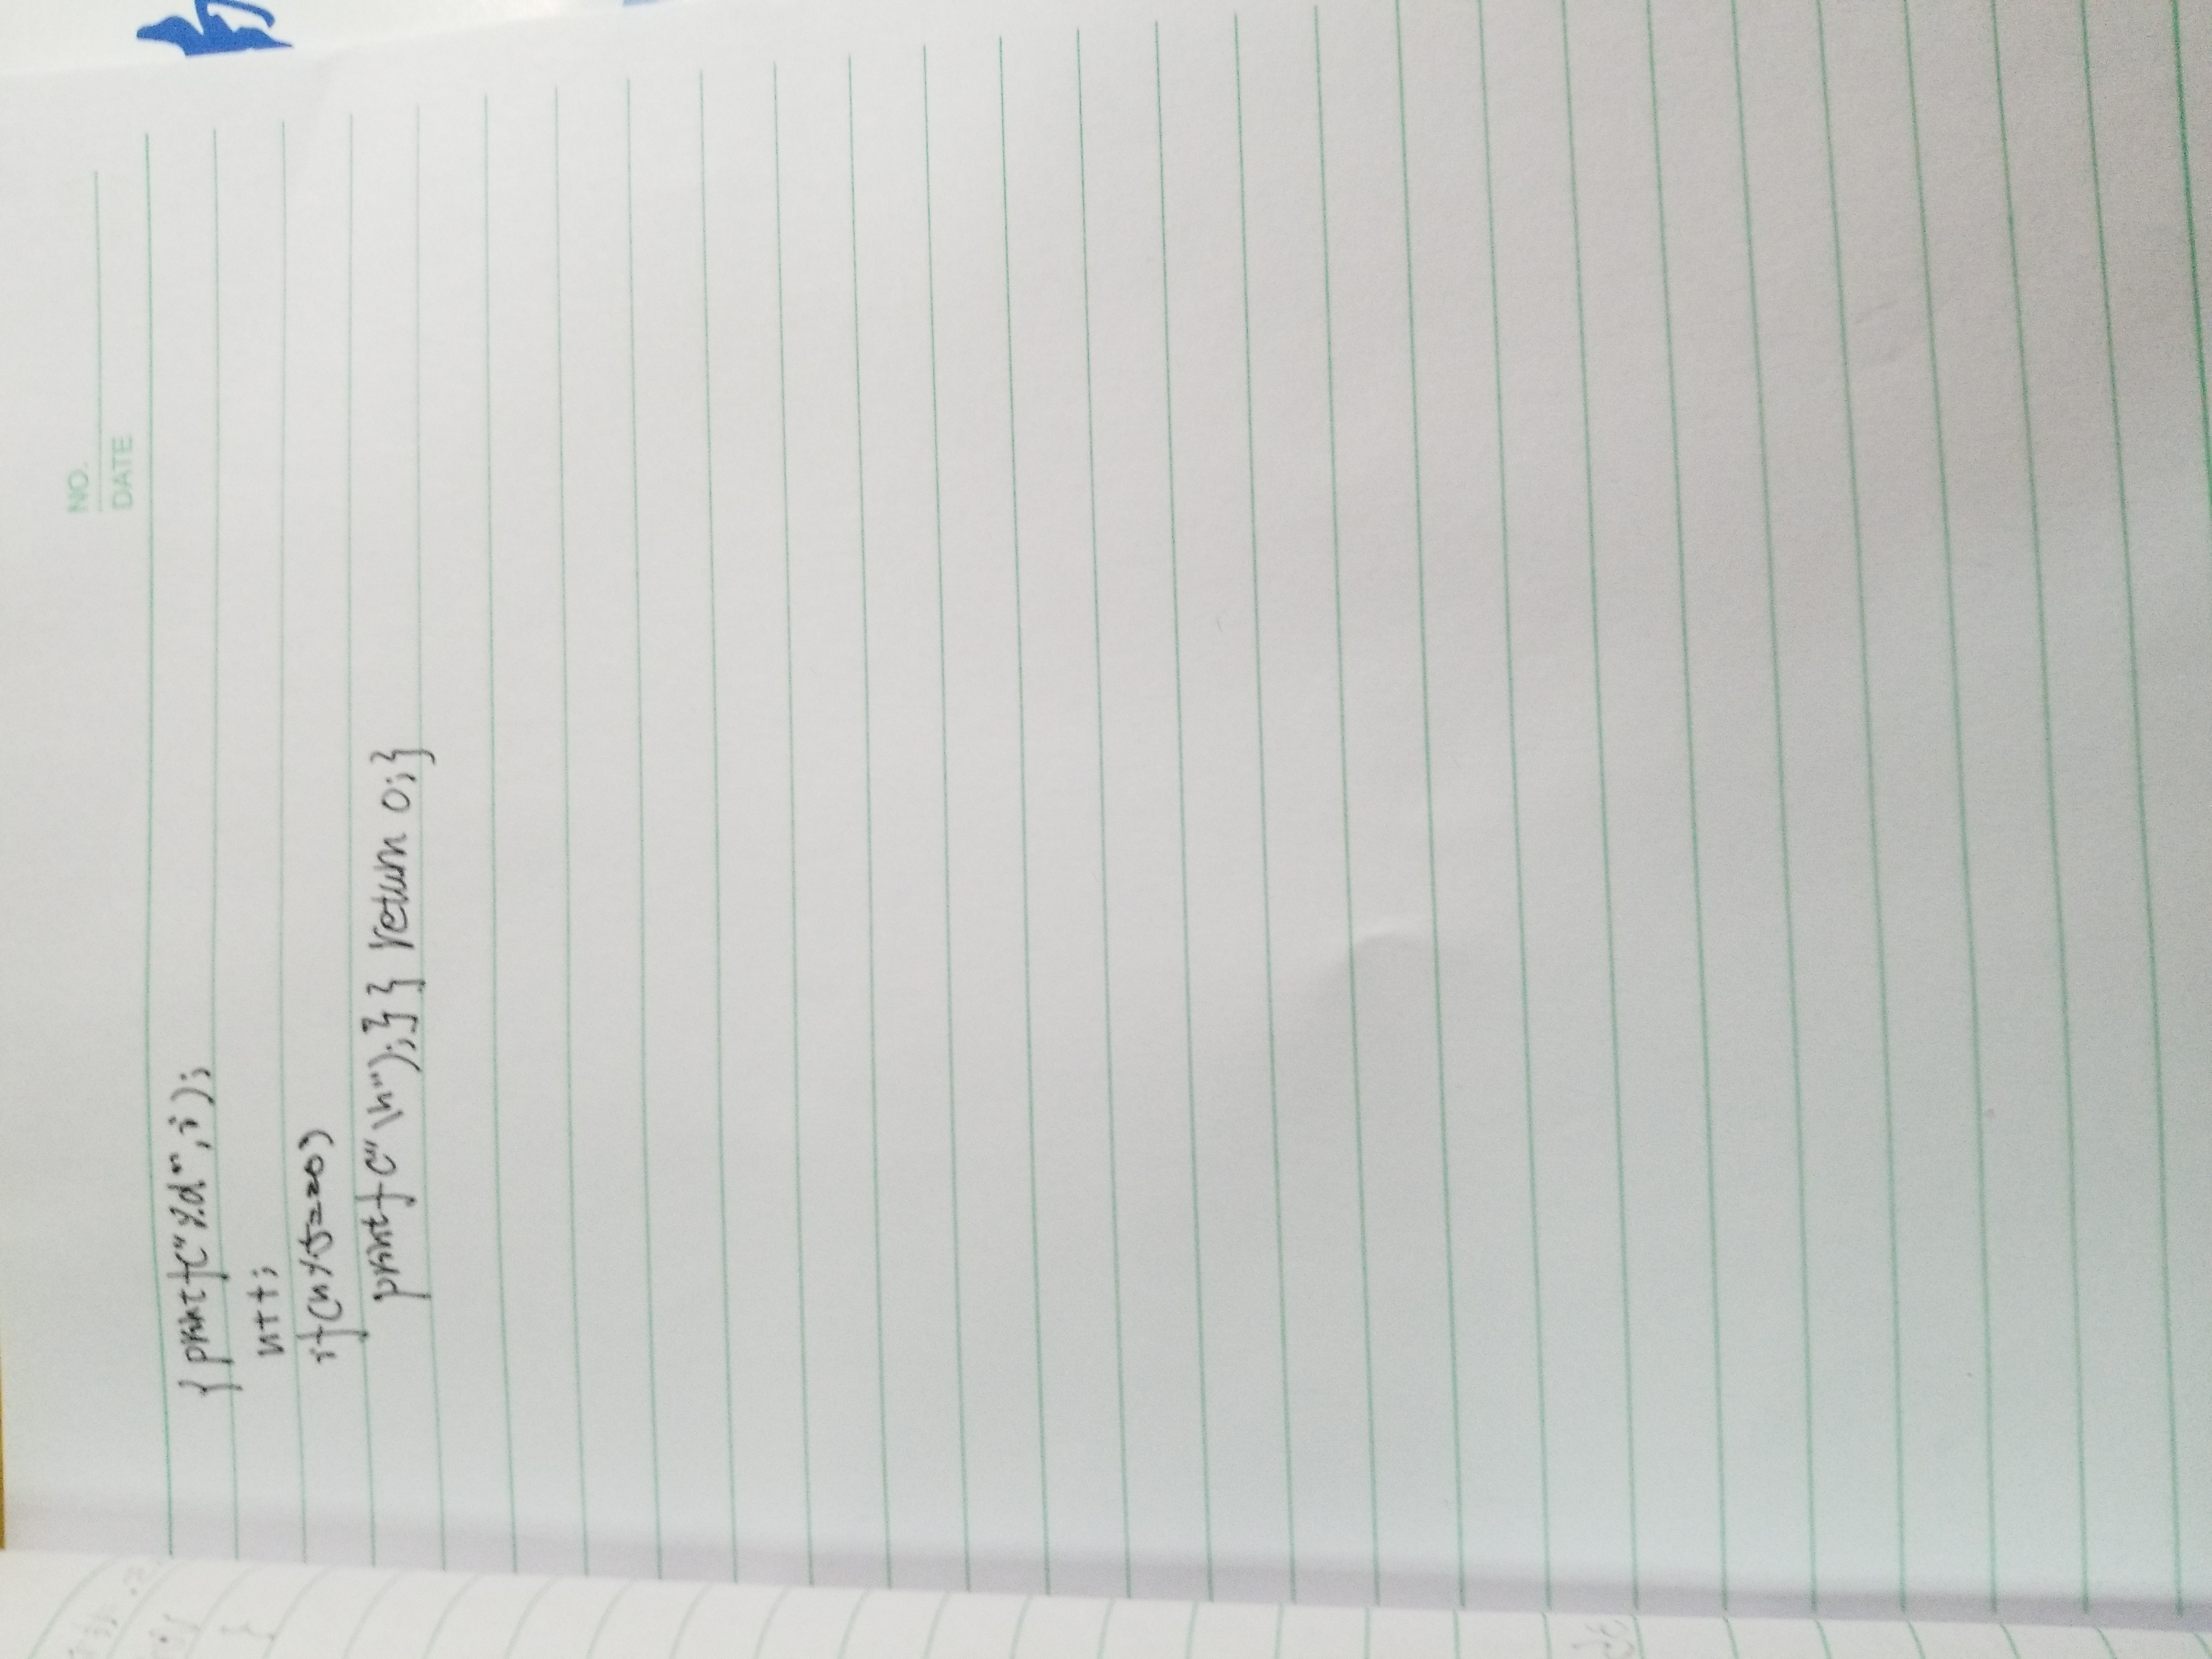 NO.
DATE
{ printf("%d",i);
n++;
if(n%5==0)
printf("\n");}} return 0;}